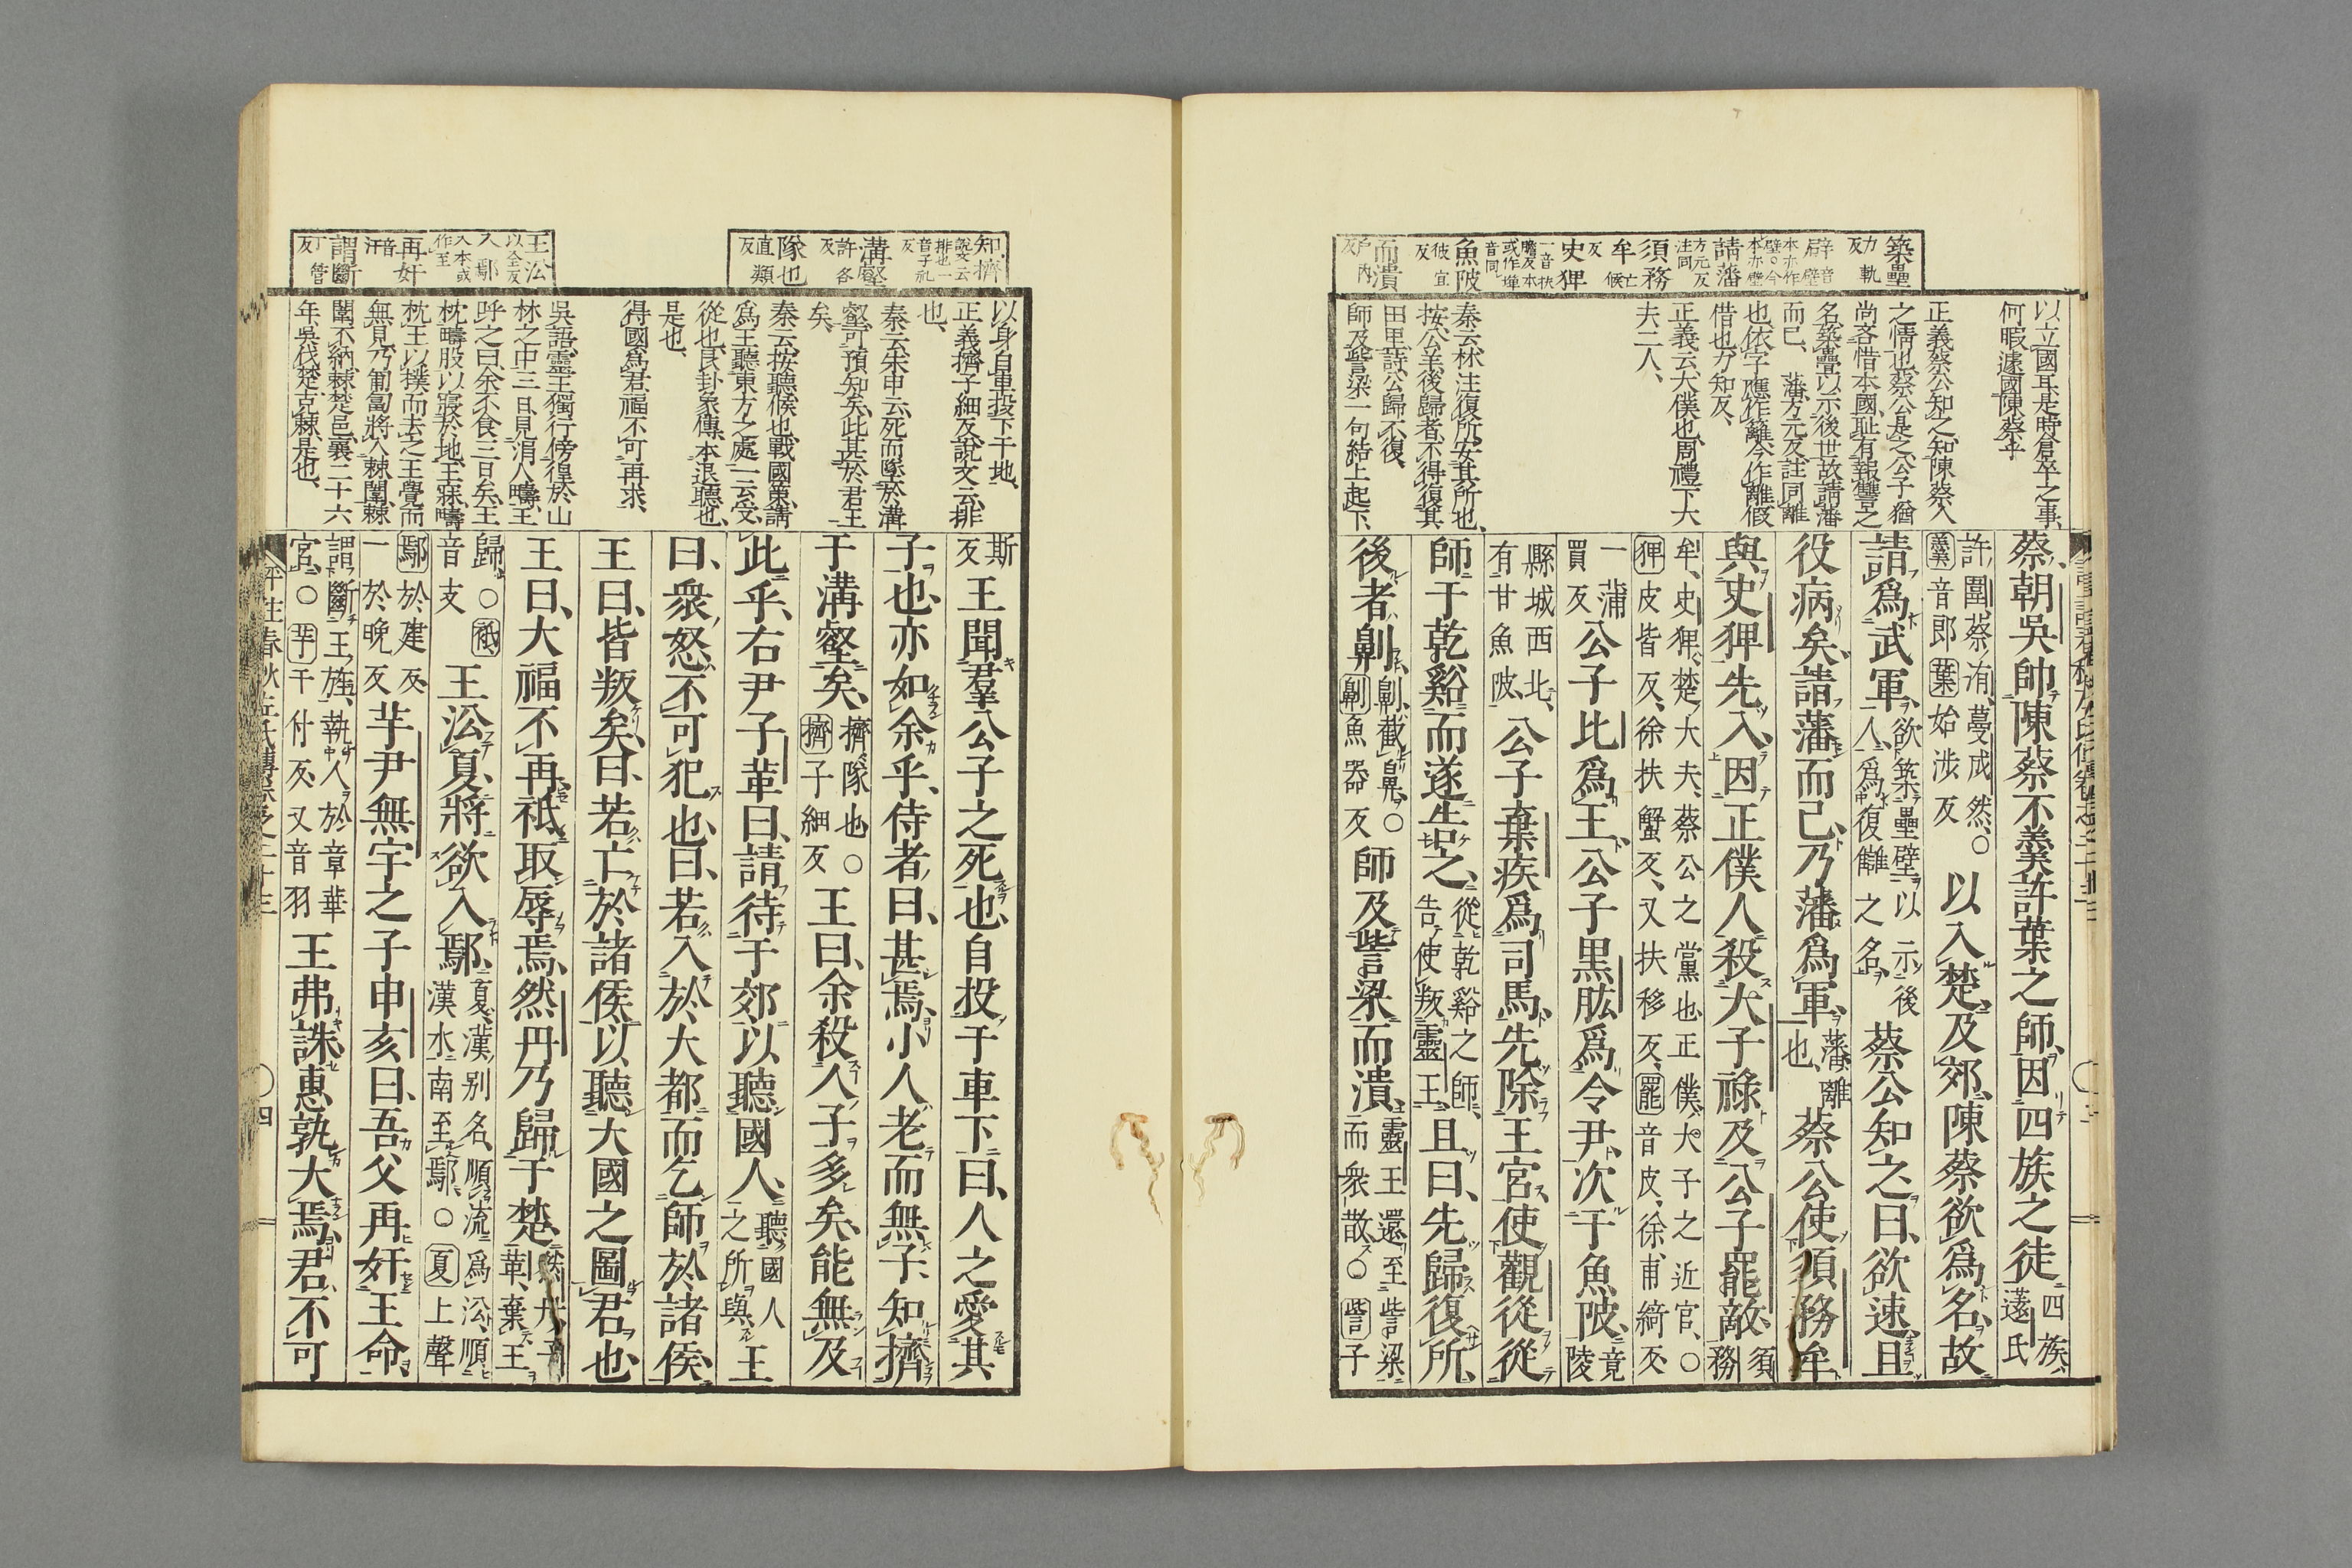 築壘
力軌反
辟音壁
本亦作壁
今本亦作壁
請藩
方元反
注同
須務
牟
亡候反
史猈
魚陂
彼宜反
而潰
戶內反
以立國耳是時倉卒之事、
何暇遽國陳蔡乎
正義蔡公知之、知陳蔡人
之情也、蔡公是楚公子猶
尚吝惜本國、恥有報讐之
名、築壘以示後世、故請藩
而已、藩方元反、註同、離
也、依字應作籬、今作離、假
借也、力知反、
正義云、大僕也、周禮下大
夫二人、
秦云、林注復所、安其所也、
按公羊後歸者、不得復其
田里、詩公歸不復、
師及訾梁一句結上起下、
蔡朝吳帥陳蔡不羹許葉之師因四族之徒四族薳氏
許圍蔡洧蔓成然○羹音郎葉始涉反以入楚及郊陳蔡欲爲名故
請爲武軍欲築壘壁以示後人爲復讎之名蔡公知之曰欲速且
役病矣請藩而已乃藩爲軍藩離也蔡公使須務牟
與史猈先入因正僕人殺大子祿及公子罷敵須務
牟史猈楚大夫蔡公之黨也正僕大子之近官○猈皮皆反徐扶蟹反又扶移反罷音皮徐甫綺反
一蒲買反公子比爲王公子黑肱爲令尹次于魚陂竟陵
縣城西北有甘魚陂公子棄疾爲司馬先除王宮使觀從從
師于乾谿而遂告之從乾谿之師告使叛靈王且曰先歸復所
後者劓劓截鼻○劓魚器反師及訾梁而潰靈王還至訾梁而衆散○訾子
知擠
說文云排也一音子禮反
溝壑
許各反
隊也
直類反
王㳂
以全反
入鄢
本或作至
再奸
音汗
謂斷
丁管反
以身自車投下于地、
正義擠子細反、說文云、排
也、
秦云、朱申云、死而墜於溝
壑、可預知矣、此甚於君王
矣、
秦云、按聽候也、戰國策、請
爲王聽東方之處、一云受、
從也、艮卦象傳、本退聽也、
是也、
得國爲君福不可再求、
吳語、靈王獨行傍偟於山
林之中三日、見涓人疇、王
呼之曰、余不食三日矣、王
枕疇股以寢於地、王寐、疇
枕王以撲而去之、王覺而
無見、乃匍匐將入棘闈、棘
闈不納、棘楚邑、襄二十六
年、吳伐楚克棘、是也、
斯反王聞羣公子之死也自投于車下曰人之愛其
子也亦如余乎侍者曰甚焉小人老而無子知擠
于溝壑矣擠隊也○擠子細反王曰余殺人子多矣能無及
此乎右尹子革曰請待于郊以聽國人聽國人之所與王
曰衆怒不可犯也曰若入於大都而乞師於諸侯
王曰皆叛矣曰若亡於諸侯以聽大國之圖君也
王曰大福不再祇取辱焉然丹乃歸于楚然丹子革棄王
歸○祇音支王㳂夏將欲入鄢夏漢別名順流爲㳂順漢水南至鄢○夏上聲
鄢於建反一於晚反芋尹無宇之子申亥曰吾父再奸王命
謂斷王旌執人於章華宮○芋于付反又音羽王弗誅惠孰大焉君不可
評註春秋左氏傳卷之二十三
四